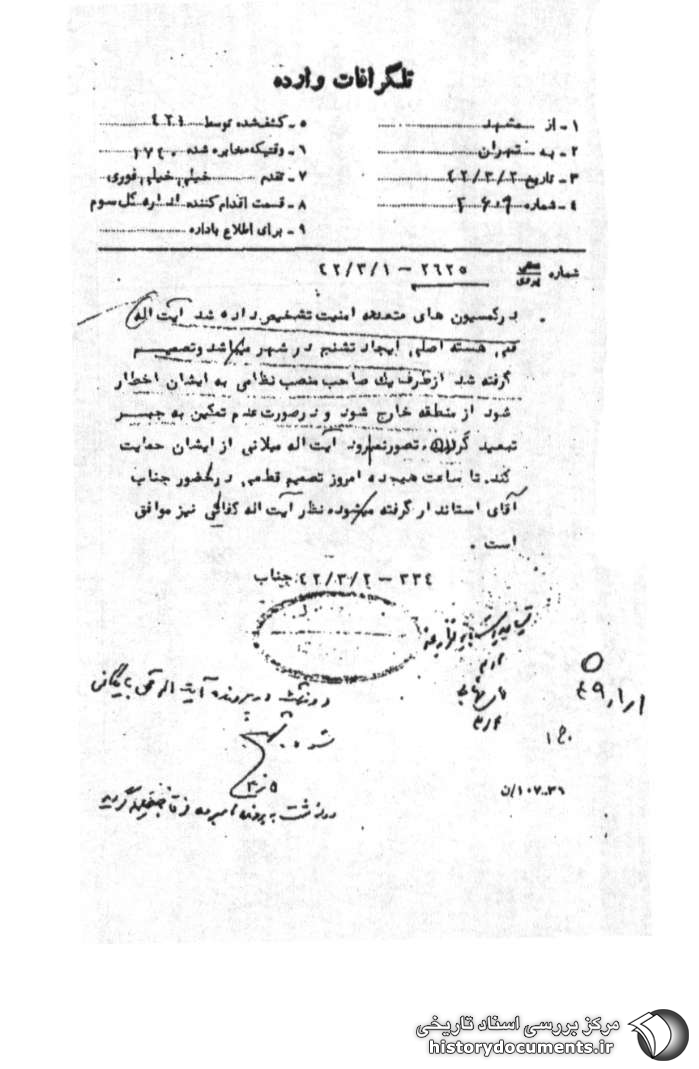 تلگرافات وارده
۱ - از مشهد
۲ - به تهران
۳ - تاریخ ۴۲/۳/۲
۴ - شماره
۵ - کشف شده توسط ۴۲۱
۶ - وقتیکه مخابره شده
۷ - تقدم خیلی خیلی فوری
۸ - قسمت اقدام کننده اداره کل سوم
۹ - برای اطلاع باداره
شماره عطفی پیروی ۲۶۲۵ - ۴۲/۳/۱
در کمسیون های متعدده امنیت تشخیص داده شد آیت اله
قمی هسته اصلی ایجاد تشنج در شهر میباشد و تصمیم
گرفته شد از طرف یک صاحب منصب نظامی به ایشان اخطار
شود از منطقه خارج شوند و در صورت عدم تمکین به جبر
تبعید گردند، تصور نمیرود آیت اله میلانی از ایشان حمایت
کند. تا ساعت هیجده امروز تصمیم قطعی در حضور جناب
آقای استاندار گرفته میشود نظر آیت اله کفائی نیز موافق
است .
۳۳۴ - ۴۲/۳/۲ جناب
رونوشت در پرونده آیت اله قمی بایگانی
شده
۱۰۷۰۰۳۶/ن
مرکز بررسی اسناد تاریخی
historydocuments.ir